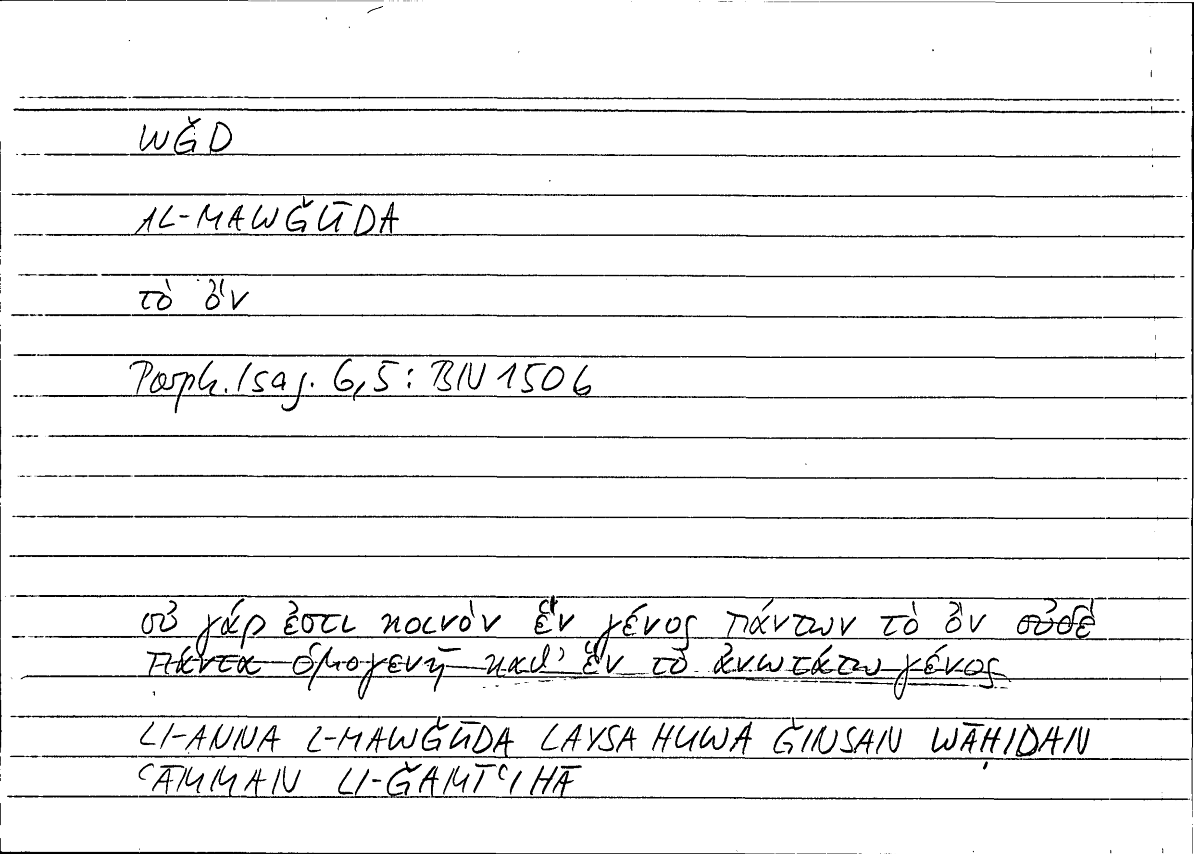 WǦD
AL-MAWǦŪDA
τὸ ὄν
Porph. Isag. 6,5: BN 1506
οὐ γάρ ἐστι κοινὸν ἓν γένος πάντων τὸ ὂν οὐδὲ
πάντα ὁμογενῆ καθ' ἓν τὸ ἀνωτάτω γένος
LI-ANNA L-MAWǦŪDA LAYSA HUWA ǦINSAN WĀḤIDAN
ʿĀMMAN LI-ǦAMĪʿIHĀ